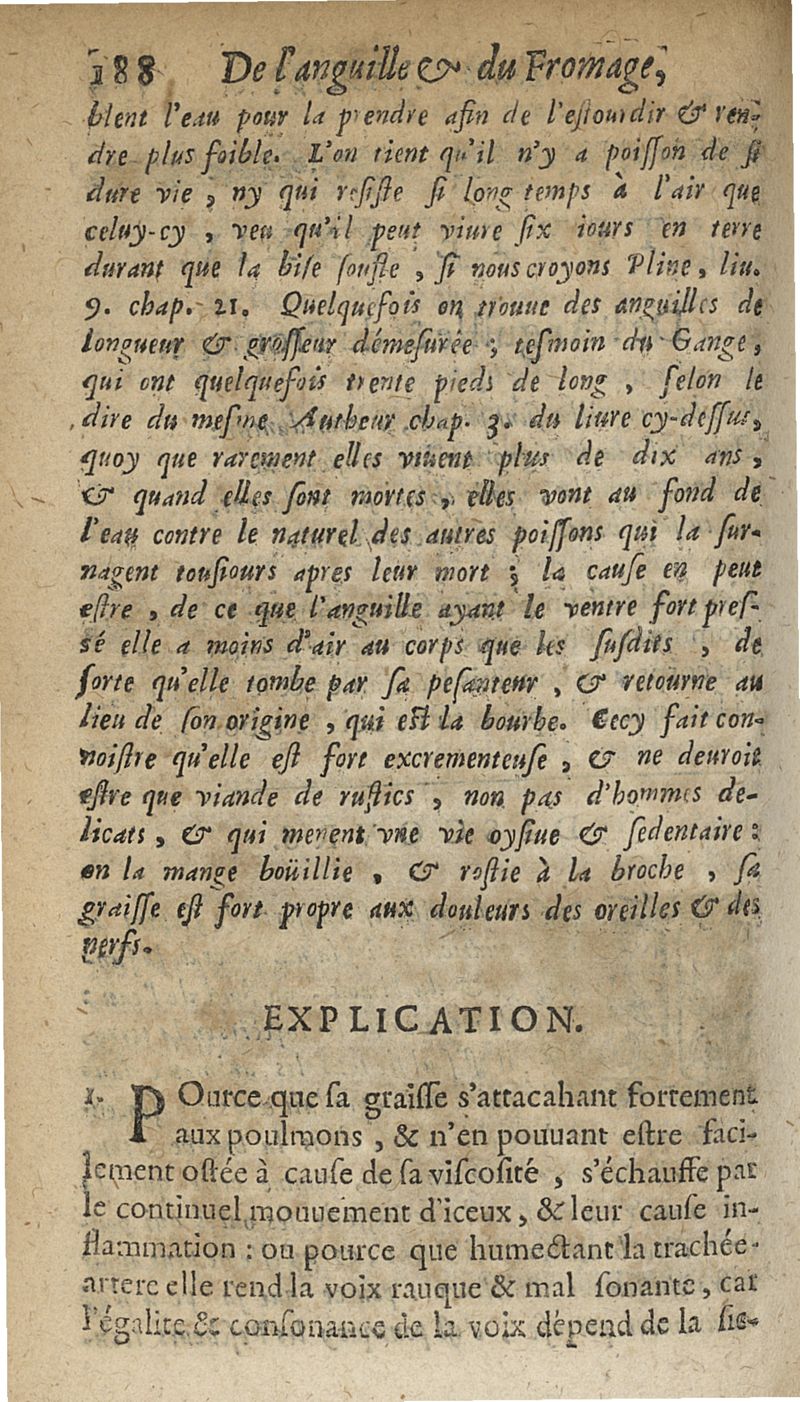 188 De l'anguille & du Fromage,
blent l'eau pour la prendre afin de l'eſtourdir & ren-
dre plus foible. L'on tient qu'il n'y a poiſſon de ſi
dure vie, ny qui reſiſte ſi long temps à l'air que
celuy-cy, veu qu'il peut viure ſix iours en terre
durant que la biſe ſoufle, ſi nous croyons Pline, liu.
9. chap. 21. Quelquefois on trouue des anguilles de
longueur & groſſeur démeſurée; teſmoin du Gange,
qui ont quelquefois trente pieds de long, ſelon le
dire du meſme Autheur chap. 3. du liure cy-deſſus,
quoy que rarement elles viuent plus de dix ans,
& quand elles ſont mortes, elles vont au fond de
l'eau contre le naturel des autres poiſſons qui la ſur-
nagent touſiours apres leur mort; la cauſe en peut
eſtre, de ce que l'anguille ayant le ventre fort preſ-
sé elle a moins d'air au corps que les ſuſdits, de
ſorte qu'elle tombe par ſa peſanteur, & retourne au
lieu de ſon origine, qui eſt la bourbe. Cecy fait con-
noiſtre qu'elle eſt fort excrementeuſe, & ne deuroit
eſtre que viande de ruſtics, non pas d'hommes de-
licats, & qui menent vne vie oyſiue & ſedentaire:
on la mange boüillie, & roſtie à la broche, ſa
graiſſe eſt fort propre aux douleurs des oreilles & des
nerfs.
EXPLICATION.
1. POurce que ſa graiſſe s'attacahant fortement
aux poulmons, & n'en pouuant eſtre faci-
lement oſtée à cauſe de ſa viſcoſité, s'échauffe par
le continuel mouuement d'iceux, & leur cauſe in-
flammation: ou pource que humectant la trachée-
artere elle rend la voix rauque & mal ſonante, car
l'égalite & conſonance de la voix dépend de la ſic-